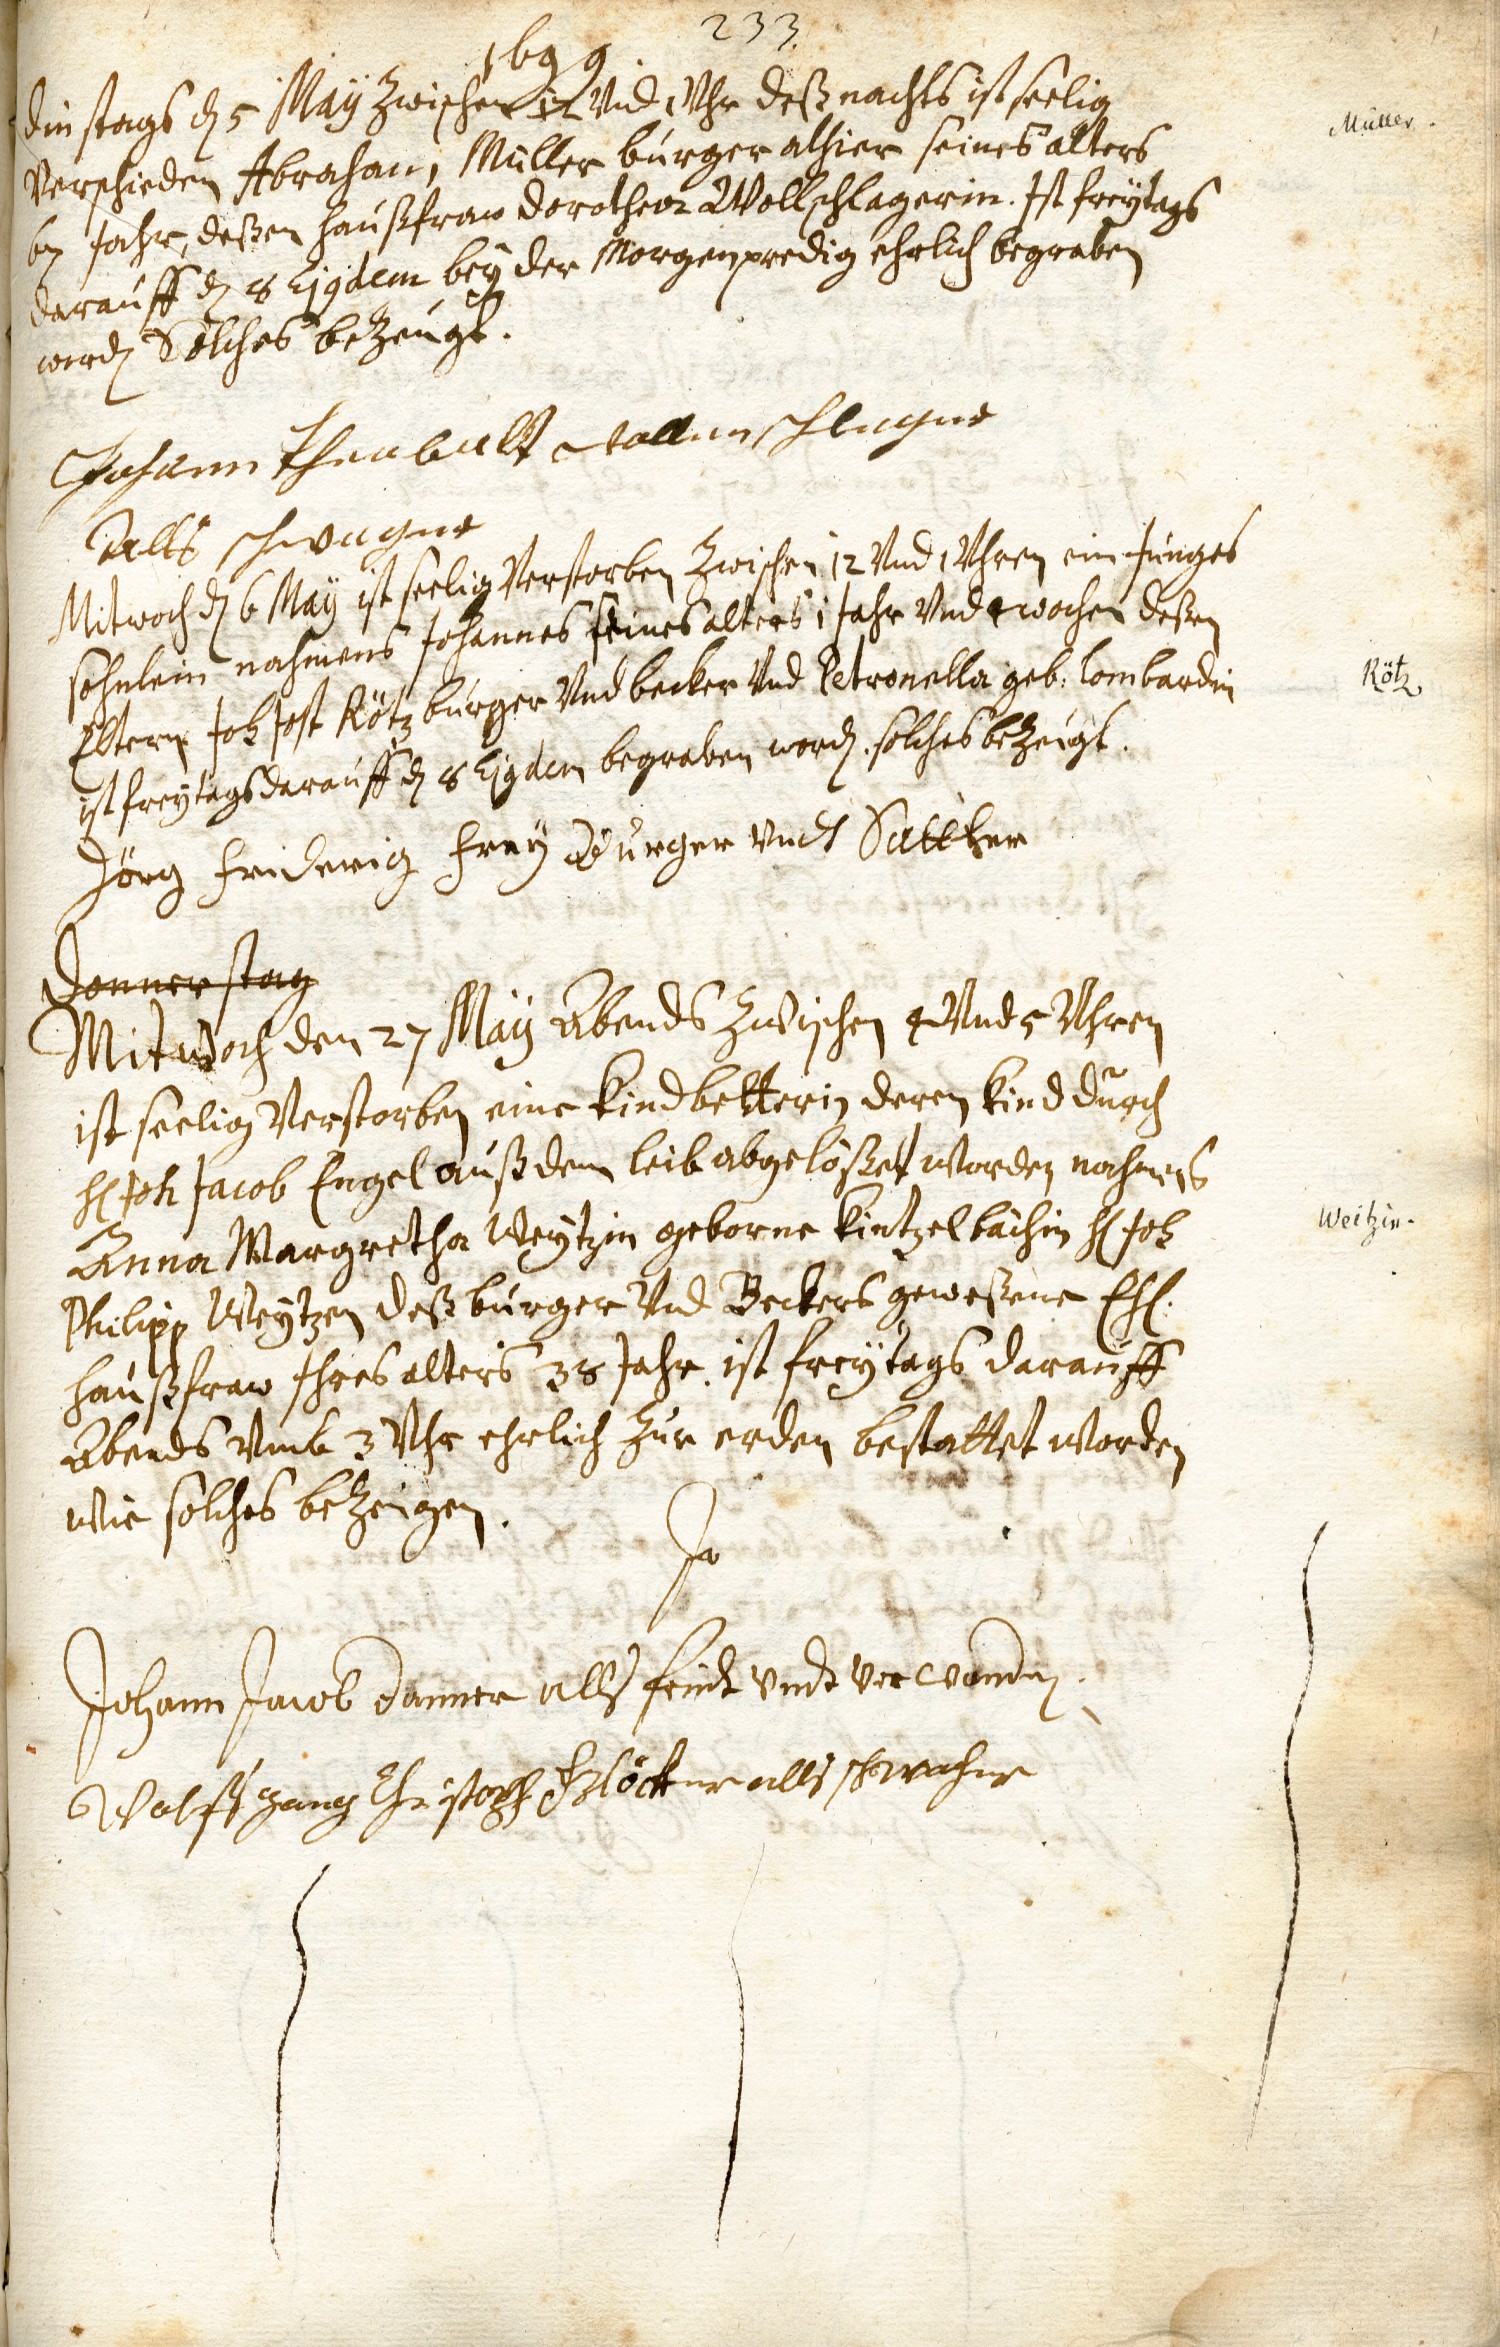 233.
1699.
Dinstags dȝ 5 May zwischen 12 Vnd 1 Vhr deß nachts ist seelig
Müller.
Verschieden Abraham, Müller burger alhier seines alters
Jahr, deßen haußfraw Dorothea Wollschlagerin. Ist freytags
darauff dȝ 8 Ejgdem bey der Morgenpredig ehrlich begraben
word Solches bezeugt.
Johann Theabalt
Alls schwager
Mitwoch dȝ 6 May ist seelig Verstorben zwischen 12 Vnd 1 Vhren ein Junges
sohnlein nahmens Johannes seines alters 1 Jahr Vnd 4 wochen deßen
Rötz
Eltern Joh Jost Rötz burger Vnd becker Vnd Petronella geb: Lombardin
ist freytags darauff dȝ 8 Ejgdem begraben word. solches bezeigt.
Jörg Friderig Frey Burger Vndt Sattler
Donnerstag
Mitwoch den 27 May Abends zwischen 4 Vnd 5 Vhren
ist seelig Verstorben eine Kindbetterin deren Kind durch
H Joh Jacob Engel auß dem leib abgelößet worden nahmens
Weitzin.
Anna Margretha Weytzin geborne Kintzelbachin H Joh
Philipp Weytzen deß burger Vnd Beckers geweßene Ehl.
haußfraw Ihres alters 38 Jahr. ist freytags darauff
Abends Vmb 3 Vhr ehrlich zur erden bestattet worden
wie solches bezeigen.
Jo
Johann Jacob Danner alls freindt Vndt verwandter.
Wolffgang Christoph alls schwager